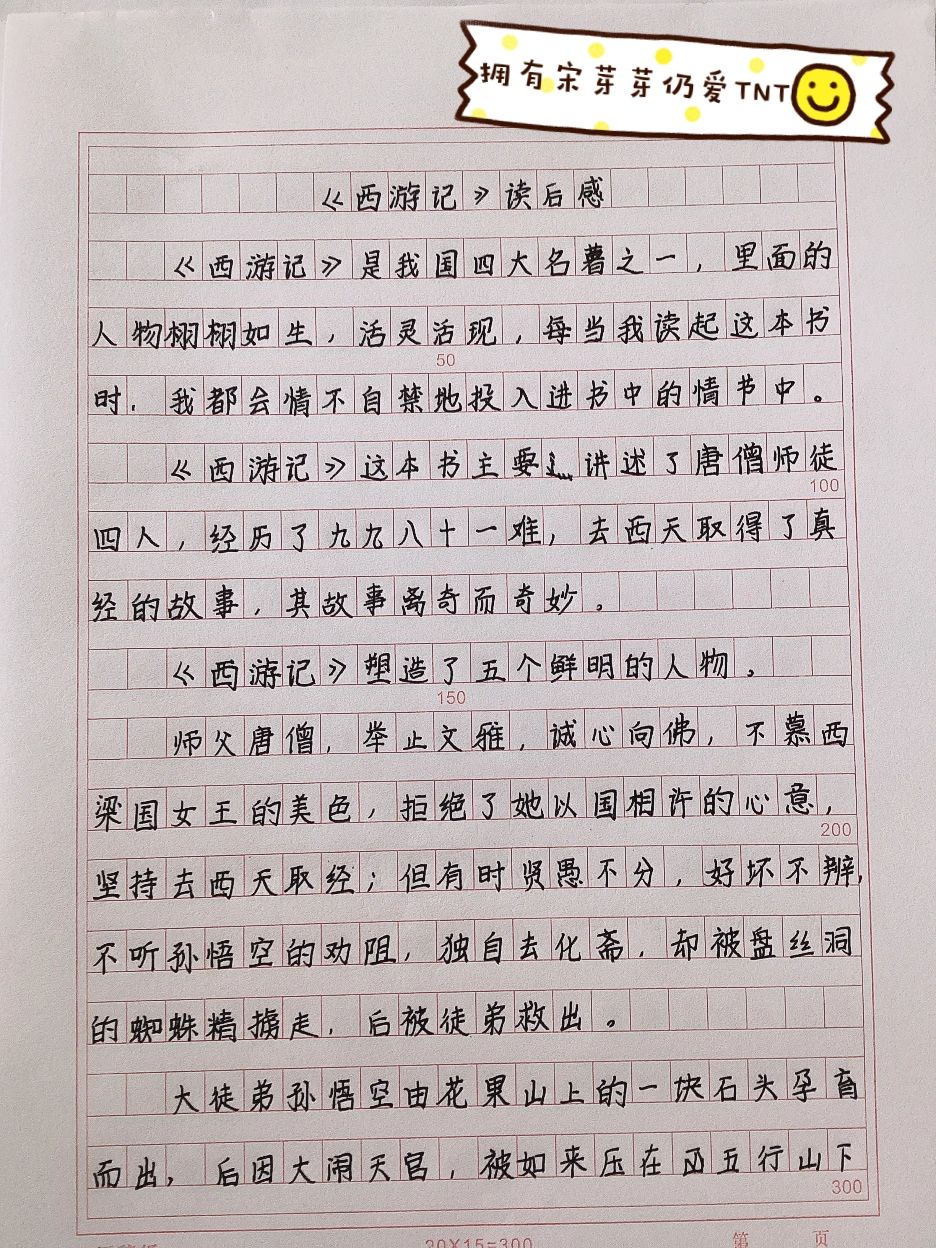 拥有宋芽芽仍爱TNT
《西游记》读后感
《西游记》是我国四大名著之一，里面的
人物栩栩如生，活灵活现，每当我读起这本书
50
时，我都会情不自禁地投入进书中的情节中。
《西游记》这本书主要讲述了唐僧师徒
100
四人，经历了九九八十一难，去西天取得了真
经的故事，其故事离奇而奇妙。
《西游记》塑造了五个鲜明的人物。
150
师父唐僧，举止文雅，诚心向佛，不慕西
梁国女王的美色，拒绝了她以国相许的心意，
200
坚持去西天取经；但有时贤愚不分，好坏不辨，
不听孙悟空的劝阻，独自去化斋，却被盘丝洞
的蜘蛛精掳走，后被徒弟救出。
大徒弟孙悟空由花果山上的一块石头孕育
而出，后因大闹天宫，被如来压在五行山下
300
20×15=300 第 页